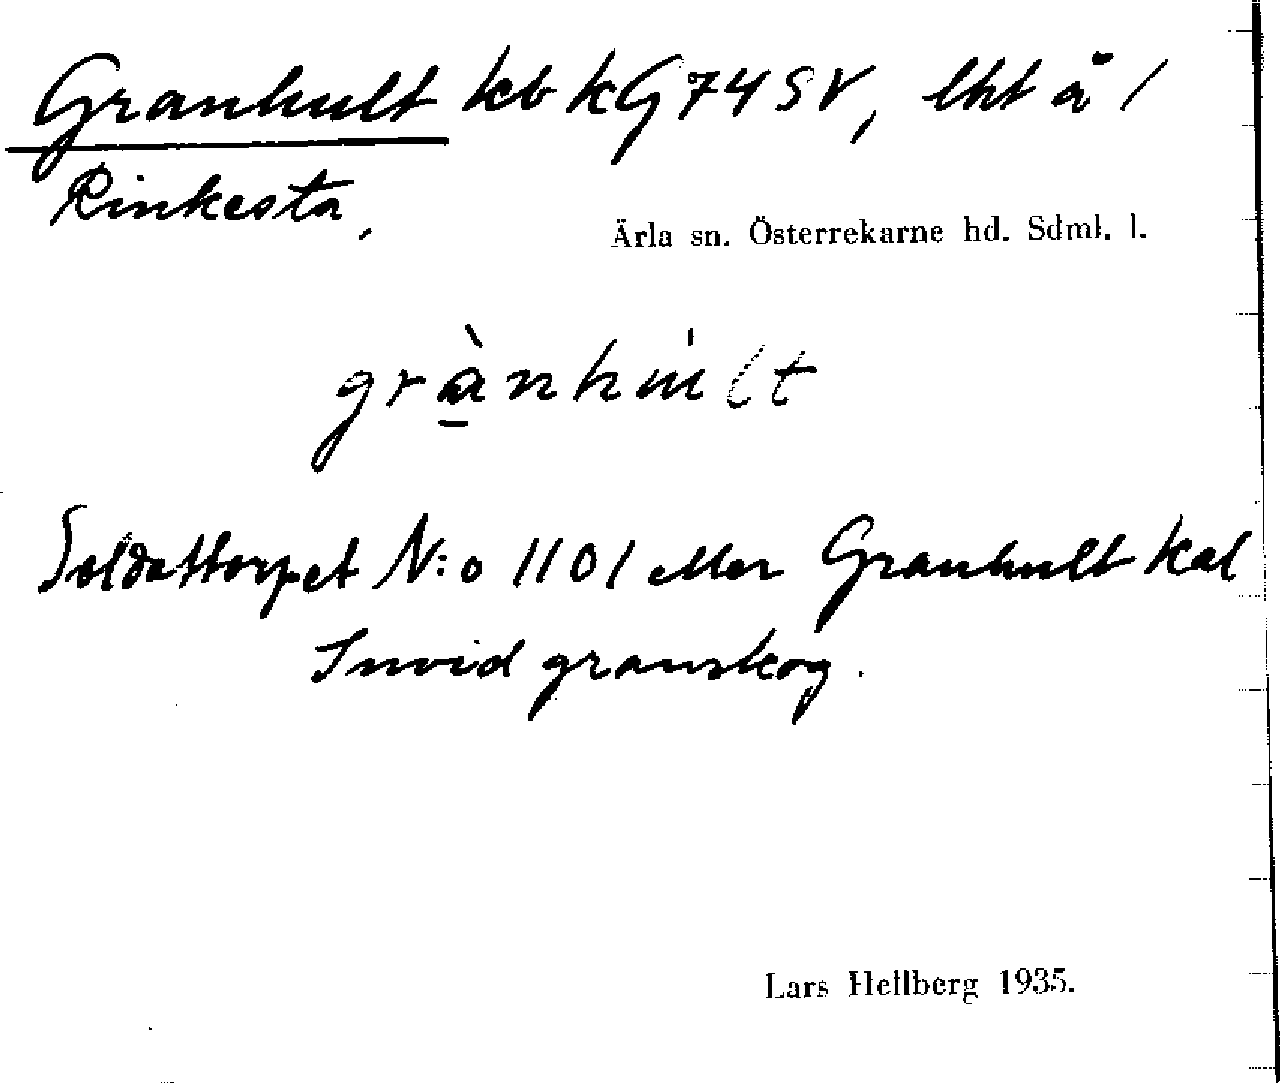 Granhult kb kG 74 SV, lht å 1
Rinkesta,
Ärla sn. Österrekarne hd. Sdml. l.
grànhu̍lt
Soldattorpet N:o 1101 eller Granhult kal
Invid granskog.
Lars Hellberg 1935.